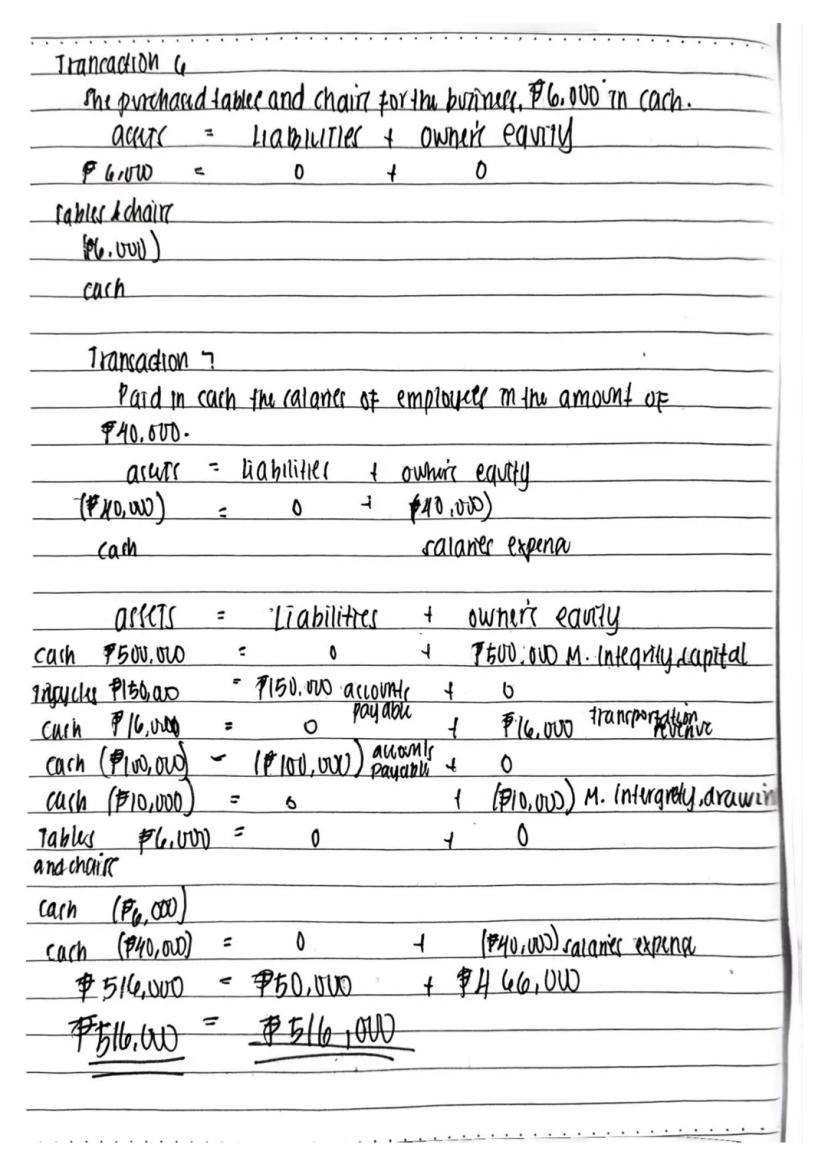 Trancaction 6
She purchased tables and chairs for the business, ₱6.000 in cash.
assets = Liabilities + owner's equity
₱6,000 = 0 + 0
tables & chairs
(₱6.000)
cash
Transaction 7
Paid in cash the salaries of employees in the amount of
₱40.000.
assets = liabilities + owner's equity
(₱40,000) = 0 + ₱40,000)
cash salaries expense
assets = Liabilities + owner's equity
cash ₱500.000 = 0 + ₱500.000 M. Integrity, capital
Tricycles ₱150,000 = ₱150.000 accounts payable + 0
cash ₱16,000 = 0 + ₱16,000 transportation revenue
cash (₱100,000) = (₱100,000) accounts payable + 0
cash (₱10,000) = 0 + (₱10,000) M. Intergrety, drawin
Tables ₱6,000 = 0 + 0
and chairs
cash (₱6,000)
cash (₱40,000) = 0 + (₱40,000) salaries expense
₱516,000 = ₱50,000 + ₱466,000
₱516,000 = ₱516,000